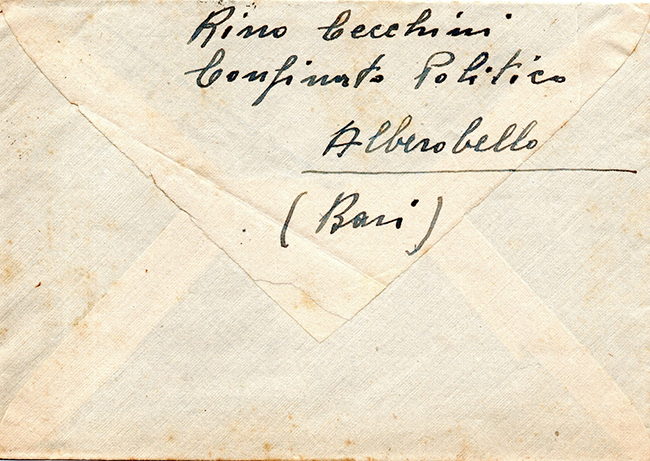 Rino Cecchini
Confinato Politico
Alberobello
(Bari)